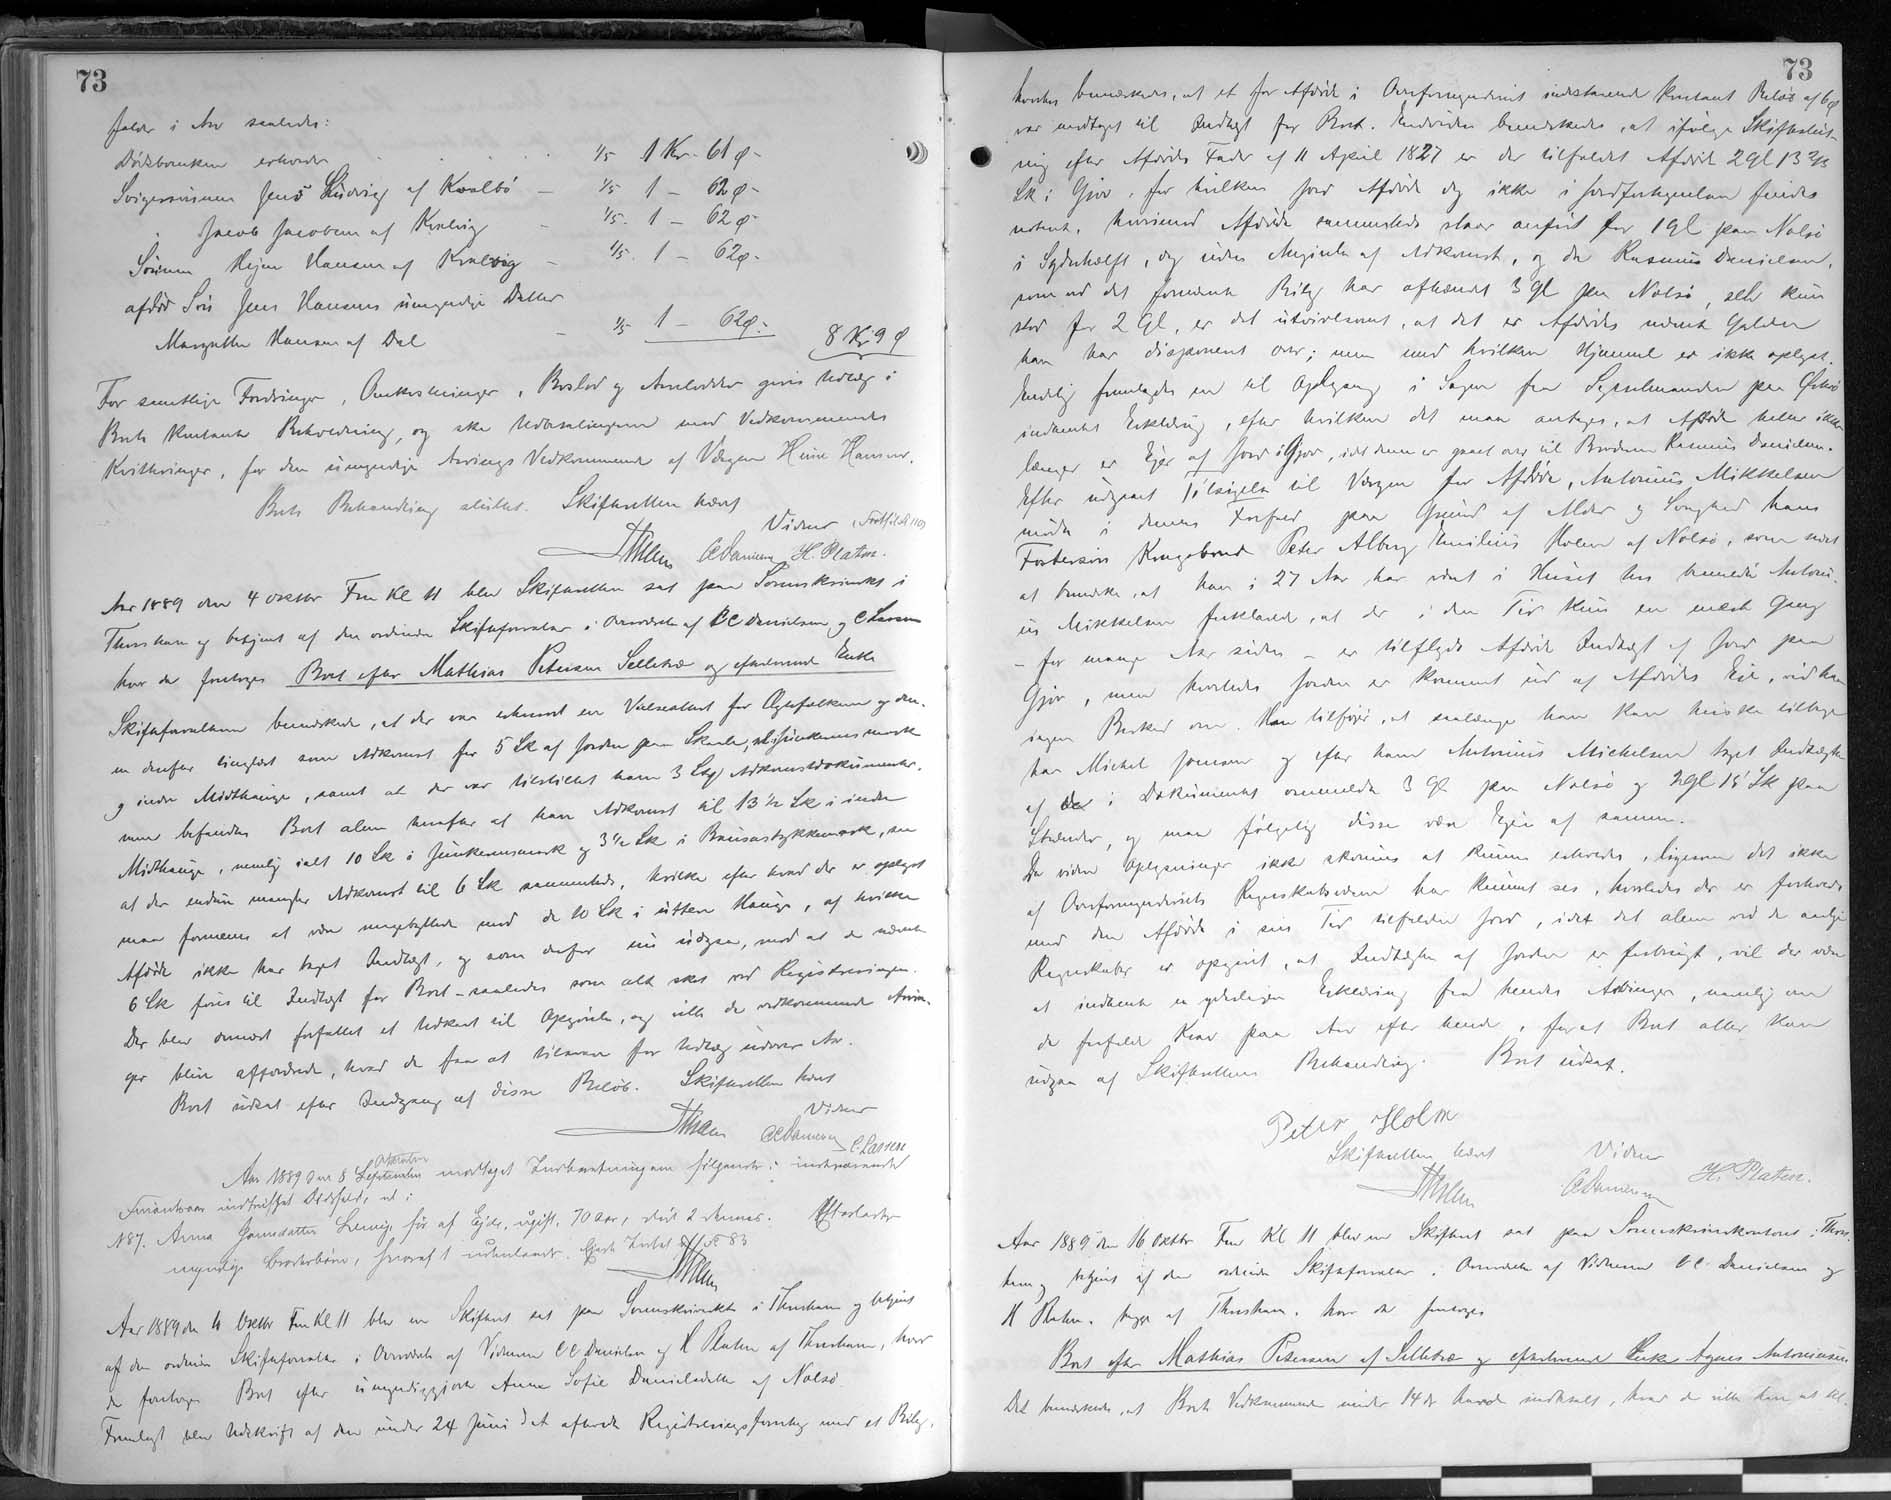 73
falder i Arv saaledes:
Dödsbrænken erholder . . . . 1/5 1 Kr. 61 ø -
Svigersönnen Jens Ludvig af Kvalbö - 1/5 1 - 62 ø -
Jacob Jacobsen af Kvalvig - 1/5 - 1 - 62 ø -
Sönnen Hejne Hansen af Kvalvig - 1/5 - 1 - 62 ø -
afdød Sön Jens Hansens umyndige Datter
Margrethe Hansen af Dal - 1/5 1 - 62 ø - 8 Kr 9 ø
For samtlige Fordringer, Omkostninger, Boslod og Arvelodder gives Udlæg i
Boets kontante Beholdning, og ske Udbetalingerne mod Vedkommendes
Kvitteringer, for den umyndige Arvings Vedkommende af Værgen Heine Hansen.
Boets Behandling sluttet. Skifteretten hævet
Vidner
CC Danielsen H. Platen.
Aar 1889 den 4 Oktbr Fm Kl 11 blev Skifteretten sat paa Sorenskriveriet i
Thorshavn og betjent af den ordinære Skifteforvalter i Overværelse af CC Danielsen og C Lassen
hvor da foretoges Boet efter Mathias Petersen Selletræ og efterlevende Enke
Skifteforvalteren bemærkede, at der var erhvervet en Vielsesattest for Ægtefolkene og den-
ne derefter tinglæst som Adkomst for 5 Lk af Jorden paa Skaale, i Junkerens mark
og indre Midthauge, samt at der var tilstillet ham 3 Adkomstdokumenter.
men befindes Boet alene herefter at have Adkomst til 13 1/2 Lk i indre
Midthauge, nemlig ialt 10 Lk i Junkerensmark og 3 1/2 Lk i Bausastykkemark, saa
at der endnu mangler Adkomst til 6 Lk sammesteds, hvilke efter hvad der er oplyst
maa formenes at være mageskiftede med de 10 Lk i uttere Hauge, af hvilke
Afdøde ikke har taget Indtægt, og som derfor nu udgaa, mod at de nævnte
6 Lk føres til Indtægt for Boet - saaledes som alt sket ved Registreringen.
Der blev dernæst forfattet et Udkast til Opgörelse, og ville de vedkommende Arvin-
ger blive affordrede, hvad de faa at tilsvare for Udlæg udover Arv.
Boet udsat efter Indgang af disse Beløb. Skifteretten hævet
Vidner
CC Danielsen C. Lassen
Aar 1889 den 8 Oktober modtaget Indberetning om følgende i indeværende
Finantsaar indtruffet Dødsfald, nl:
N 87. Anna Joensdatter Lervig før af Ejde, ugift, 70 Aar, død 2 dennes. Efterlader
myndige Broderbørn, hvoraf 1 udenlands.
Aar 1889 den 11 Oktbr Fm Kl 11 blev en Skifteret sat paa Sorenskriveriet i Thorshavn og betjent
af den ordinære Skifteforvalter i Overværelse af Vidnerne CC Danielsen og H Platen af Thorshavn, hvor
da foretoges Boet efter umyndiggjorte Anna Sofie Danielsdatter af Nolsö.
Fremlagt blev Udskrift af den under 24 Juni d A afholdte Registreringsforretning med et Bilag,
73
hvorhos bemærkedes, at et for Afdøde i Overformynderiet indestaaende kontant Beløb af 6 ø
var modtaget til Indtægt for Boet. Endvidere bemærkedes, at ifølge Skifteslut-
ning efter Afdødes Fader af 11 April 1827 er der tilfaldet Afdøde 2 Gl 13 2/3
Lk i Gjov, for hvilken Jord Afdøde dog ikke i Jordfortegnelsen findes
noteret, hvorimod Afdøde sammesteds staar anført for 1 Gl paa Nolsö
i Syderhælft, dog uden Angivelse af Adkomst, og da Rasmus Danielsen,
som ved det fornævnte Bilag har afhændet 3 Gl paa Nolsö, selv kun
stod for 2 Gl, er det utvivlsomt, at det er Afdødes nævnte Gylden
han har disponeret over; men med hvilken Hjemmel er ikke oplyst.
Endelig fremlagdes en til Oplysning i Sagen fra Sysselmanden paa Østerö
indhentet Erklæring, efter hvilken det maa antages, at Afdøde heller ikke
længer er Ejer af Jord i Gjov, idet denne er gaaet over til Broderen Rasmus Danielsen.
Efter udgaaet Tilsigelse til Værgen for Afdøde, Antonius Mikkelsen
mødte i dennes Forfald paa Grund af Alder og Svaghed hans
Fostersøn Kongsbonde Peter Alberg Emilius Holm af Nolsö, som med
at bemærke, at han i 27 Aar har været i Huset hos bemeldte Antoni-
us Mikkelsen forklarede, at der i den Tid kun en enest Gang
- for mange Aar siden - er tilflydt Afdøde Indtægt af Jord paa
Gjov, men hvorledes Jorden er kommet ud af Afdødes Eje, vidste han
ingen Besked om. Han tilføjer, at saalænge han kan huske tilbage
har Michel Joensen og efter ham Antonius Michelsen taget Indtægten
af de i Dokumentet ommeldte 3 Gl paa Nolsö og 2 Gl 15 Lk paa
Strænder, og maa følgelig disse være Ejere af samme.
Da videre Oplysninger ikke skønnes at kunne erholdes, ligesom det ikke
af Overformynderiets Regnskabsvæsen har kunnet ses, hvorledes der er forholdt
med den Afdøde i sin Tid tilfaldne Jord, idet det alene ved de aarlige
Regnskaber er opgivet, at Indtægten af Jorden er forbrugt, vil der være
at indhente en yderligere Erklæring fra hendes Arvinger, nemlig om
de frafalde Krav paa Arv efter hende, forat Boet eller kan
udgaa af Skifterettens Behandling. Boet udsat.
Peter Holm
Skifteretten hævet Vidner
CC Danielsen H. Platen.
Aar 1889 den 16 Oktbr Fm Kl 11 blev en Skifteret sat paa Sorenskriverkontoret i Thors-
havn og betjent af den ordinære Skifteforvalter i Overværelse af Vidnerne CC Danielsen og
H Platen, begge af Thorshavn, hvor da foretoges
Boet efter Mathias Petersen af Selletræ og efterlevende Enke Agnes Antoniusen
Det bemærkedes, at Boets Vedkommende under 14 ds havde indbetalt, hvad de ville have at til-